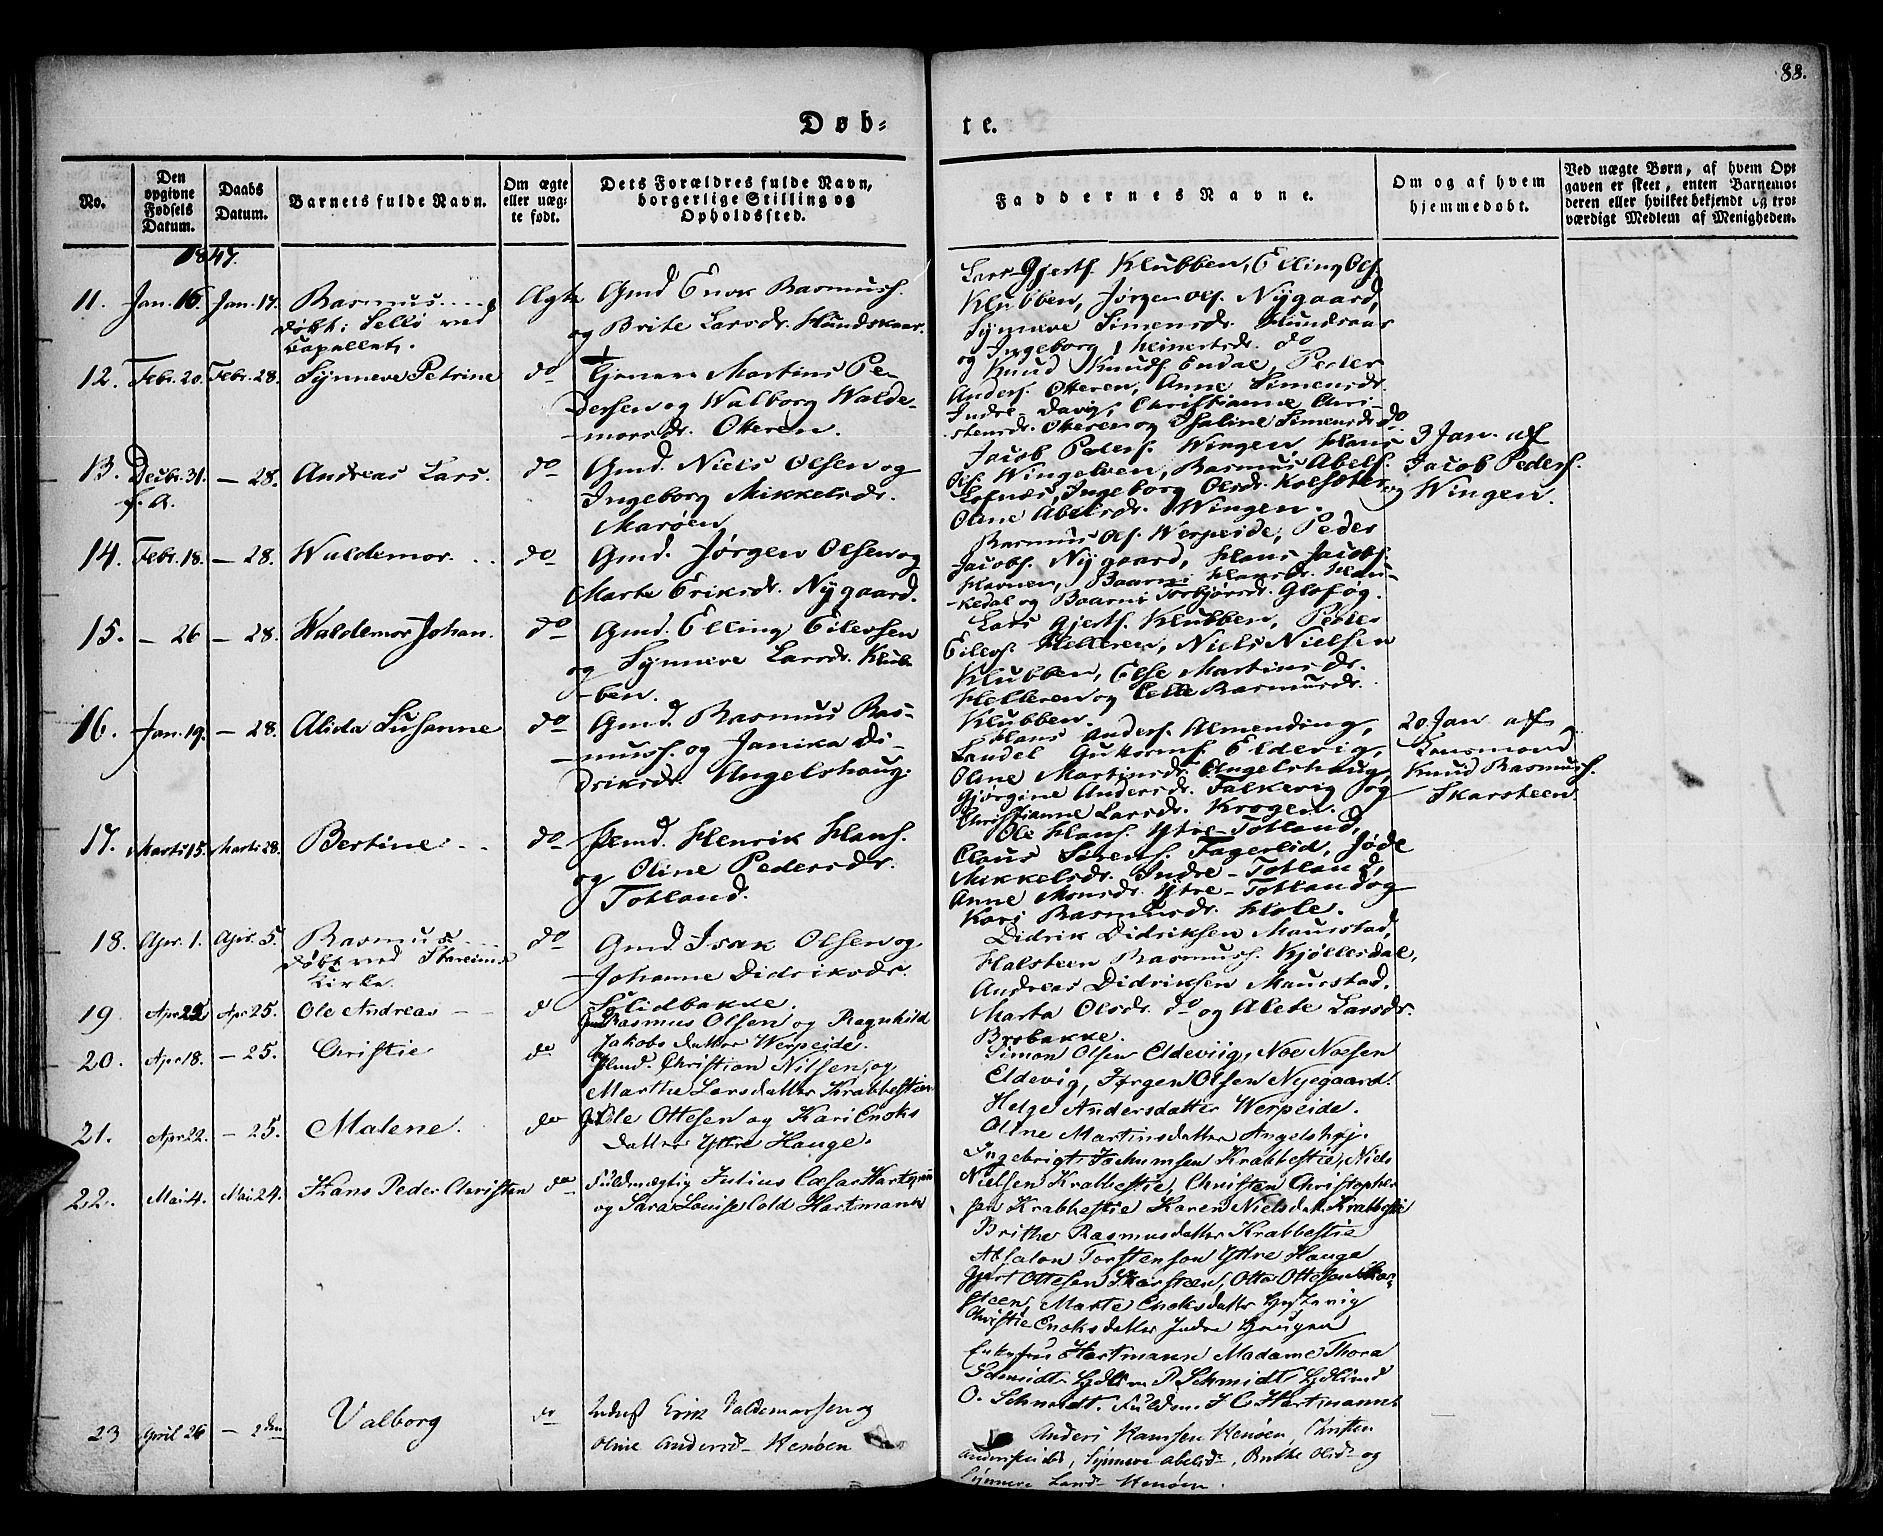 88.
Døb-
te.
No.
Den opgivne Fødsels Datum.
Daabs Datum.
Barnets fulde Navn.
Om ægte eller uægte født.
Dets Forældres fulde Navn, borgerlige Stilling og Opholdssted.
Faddernes Navne.
Om og af hvem hjemmedøbt.
Ved uægte Børn, af hvem Opgaven er skeet, enten Barnemoderen eller hvilket bekjendt og troværdigt Medlem af Menigheden.
1847.
11. Jan. 16 Jan. 17. Rasmus
døbt i Selø ved
Capellet.
Ægte
Gmd Enok Rasmuss.
og Brite Larsdr. Hundskaar.
Lars Gjerts. Klubben, Elling Ols.
Klubben, Jørgen Ols. Nygaard,
Synneve Simensdr. Hundskaar
og Ingeborg Meinertsdr. do
12. Febr. 20. Febr. 28. Synneve Petrine do
Martins Pe-
dersen og Walborg Walde-
morsdr. Otteren.
Knud Knuds. Endal, Peder
Anders. Otteren, Anne Simensdr.
Indre-Davig, Christianne Chri-
stensdr. Otteren og Isaline Simensdr. do
13. Decbr. 31. f. A. - 28. Andreas Lars. do
Gmd. Niels Olsen og
Ingeborg Mikkelsdr.
Marøen
Jacob Peders. Wingen, Hans
Ols. Wingelven, Rasmus Abels.
Lofnæs, Ingeborg Olsdr. Kolsæter og
Oline Abelsdr. Wingen.
3 Jan. af
Jacob Peders.
Wingen.
14. Febr. 18. - 28. Waldemor do
Gmd. Jørgen Olsen og
Marte Eriksdr. Nygaard.
Rasmus Ols. Werpeide, Peder
Jacobs. Nygaard, Hans Jacobs.
Havnen, Baarni Hansdr. Hau-
kedal og Baarni Torbjørsdr. Glofog.
15. - 26 - 28. Waldemor Johan. do
Gmd. Elling Eilersen
og Synneve Larsdr. Klub-
ben.
Lars Gjerts. Klubben, Peder
Eilers. Helleren, Niels Nielsen
Klubben, Else Martinsdr.
Helleren og Rasmusdr.
Klubben.
16. Jan. 19. - 28. Alida Susanne do
Gmd. Rasmus Ras-
muss. og Janika Di-
driksdr. Angelshaug.
Hans Anders. Almending,
Sandel Guttorms. Eldevig,
Oline Martinsdr. Angelshaug,
Gjørgine Andersdr. Falkevig og
Christianne Larsdr. Krogen.
20 Jan af
Knud Rasmuss.
Skarsteen.
17. Marts 15. Marts 28. Bertine do
Henrik Hans.
og Oline Pedersdr.
Totland.
Ole Hans. Ytre-Totland,
Claus Sørens. Fagerlid, Jøde
Mikkelsdr. Indre-Totland,
Anne Monsdr. Ytre-Totland og
Kari Rasmusdr. Hole.
18. Apr. 1. Apr. 5. Rasmus
døbt ved Stareims
Kirke.
do
Gmd Isak Olsen og
Johanne Didriksdr.
Slidbakke.
Didrik Didriksen Maurstad,
Halsteen Rasmuss. Kjøllesdal,
Andreas Didriksen Maurstad,
Marta Olsdr. do og Alete Larsdr.
Brobakke.
19. Apr 22 Apr 25. Ole Andreas do
Gmd Rasmus Olsen og Regnhild
Jakobsdatter Werpeide.
Simon Olsen Eldeviig, Noe Noesen
Eldevig, Jørgen Olsen Nyegaard.
Helge Andersdatter Werpeide.
Oline Martinsdatter Angelshøj.
20. Apr 18. - 25. Christie do
Christian Nilsen, og
Marthe Larsdatter Krabbestien
Ingebrigt Jochumsen Krabbestie, Niels
Nielsen Krabbestie, Christen Christopher
sen Krabbestie Karen Nielsdatt. Krabbestie
Brithe Rasmusdatter Krabbestie
21. Apr 22. - 25. Malene. do
Ole Ottesen og Kari Enoks
datter Ystre Hauge.
Absalon Torstenson Ystre Hauge
Gjert Ottesen Skarsteen, Otto Ottesen Skar-
steen, Marte Enoksdatter
Christie Enoksdatter Indre Haugen
22. Mai 4. Mai 24. Hans Peder Christen do
Fuldmægtig Julius Cæsar Hartmann
og Sara Louise Cold Hartmann
Enkefru Hartmann Madame Thora
Schmidt P Schmidt
O. Schmidt. Fuldm. J C Hartmann
23 April 26 - Valborg do
Indst Erik Valdemarsen og
Oline Andersd- Henøen
Anders Hanssen Henøen, Christen
Synneve Abelsd-, Brithe Olsd- og
Synneve Henøen.